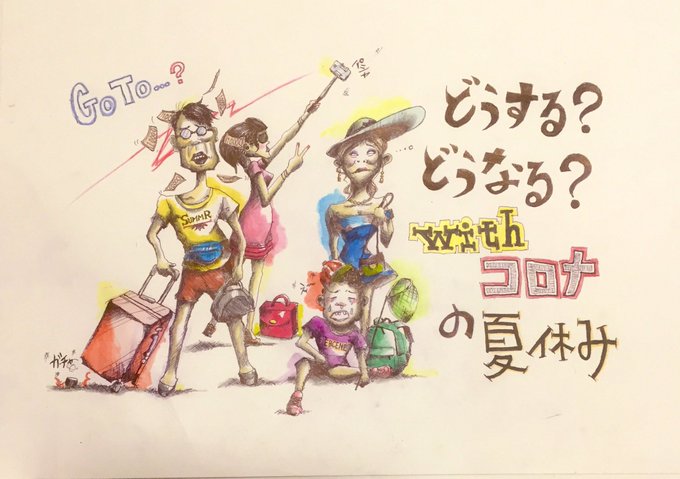 GoTo...?
パシャ
どうする?
どうなる?
with
コロナ
の夏休み
SUMMR